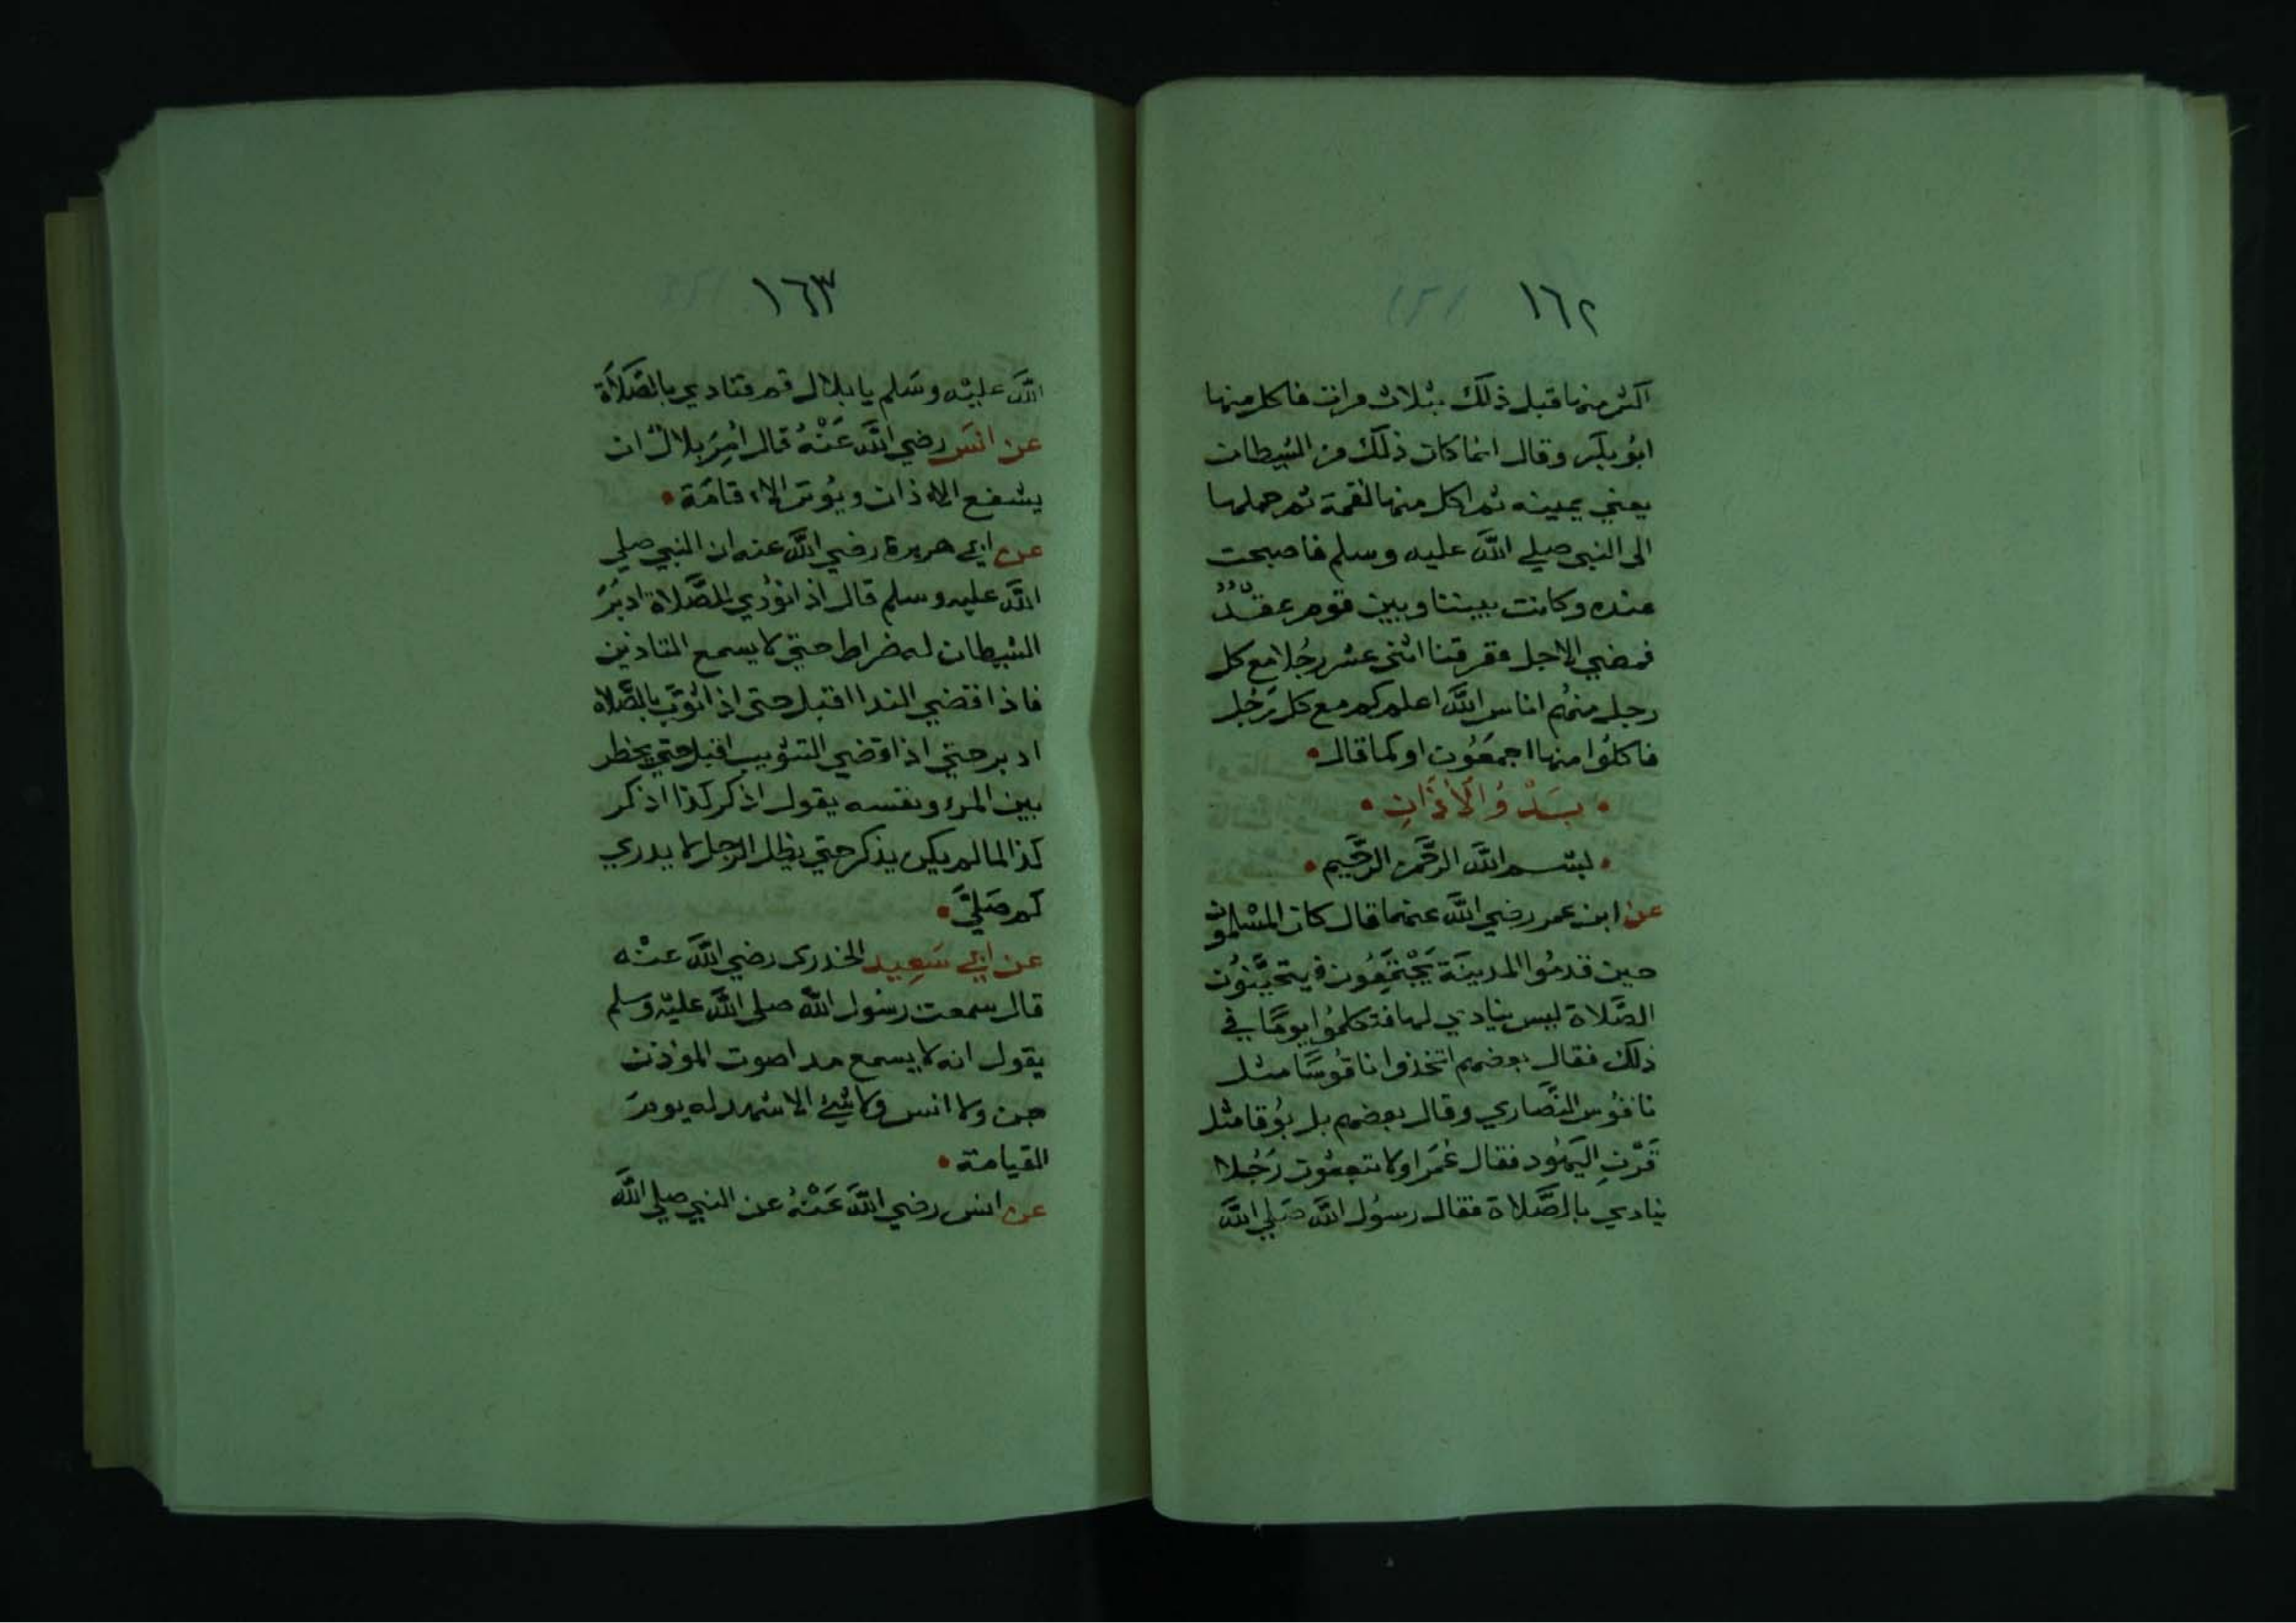 ١٦٢
اكثر منها قبل ذلك بثلاث مرات فاكل منها
ابُو بكر وقال انما كان ذلك من الشيطان
يعني يمينه ثم اكل منها لقمة ثم حملها
الى النبي صلي اللَّه عليه وسلم فاصبحت
عنده وكانت بيننا وبين قوم عقدٌ
فمضي الاجل ففرقنا اثنى عشر رجُلا مع كل
رجل منهُم اناس اللَّه اعلم كم مع كل رَجُل
فاكلوُا منها اجمعُون او كما قال •
• بَدْ وُ الْأَذَانِ •
• بسْم اللَّه الرَّحمن الرَّحيم •
عن ابن عمر رضي اللَّه عنهما قال كان المسْلمون
حين قدمُوا المدينَة يَجْتَمِعُون فيتحيَّنُون
الصَّلاة ليس ينادي لها فتكلموُا يومًا في
ذلك فقال بعضهم اتخذوا ناقُوسًا مثل
ناقوُس النَّصاري وقال بعضهم بل بُوقا مثل
قَرْنِ اليَهُود فقال عُمَر اولا تبعثون رَجُلا
ينادي بالصَّلاة فقال رسُول اللَّه صَلي اللَّه
١٦٣
اللَّه عليْه وسَلم يا بلال قم فنادي بالصَّلَاَة
عن انَس رضي اللَّه عَنْهُ قال امُِرَ بلالٌ ان
يشفع الاذان ويُوتر الاقامَة •
عن ابي هريرة رضي اللَّه عنه ان النبي صلي
اللَّه عليه وسلم قال اذا نوُدي للصَّلاة ادبَرَ
الشيطان له ضراط حتي لا يسمع التاذين
فاذا قضي الندا اقبل حتى اذا ثوُّبَ بالصَّلاه
ادبر حتي اذا قضي التثويب اقبل حتي يخطر
بين المرء ونفسه يقول اذكر كذا اذكر
كذا لما لم يكن يذكر حتي يظل الرجل لا يدري
كم صَليَّ •
عن ابي سَعِيد الخدرى رضي اللَّه عنْه
قال سمعت رسُول اللَّه صلى اللَّه عليْه وسلم
يقول انه لا يسمع مدا صوت الموذن
جن ولا انس ولا شيءٌ الا شهد له يومَ
القيامة •
عن انس رضي اللَّه عَنْهُ عن النبي صلي اللَّه